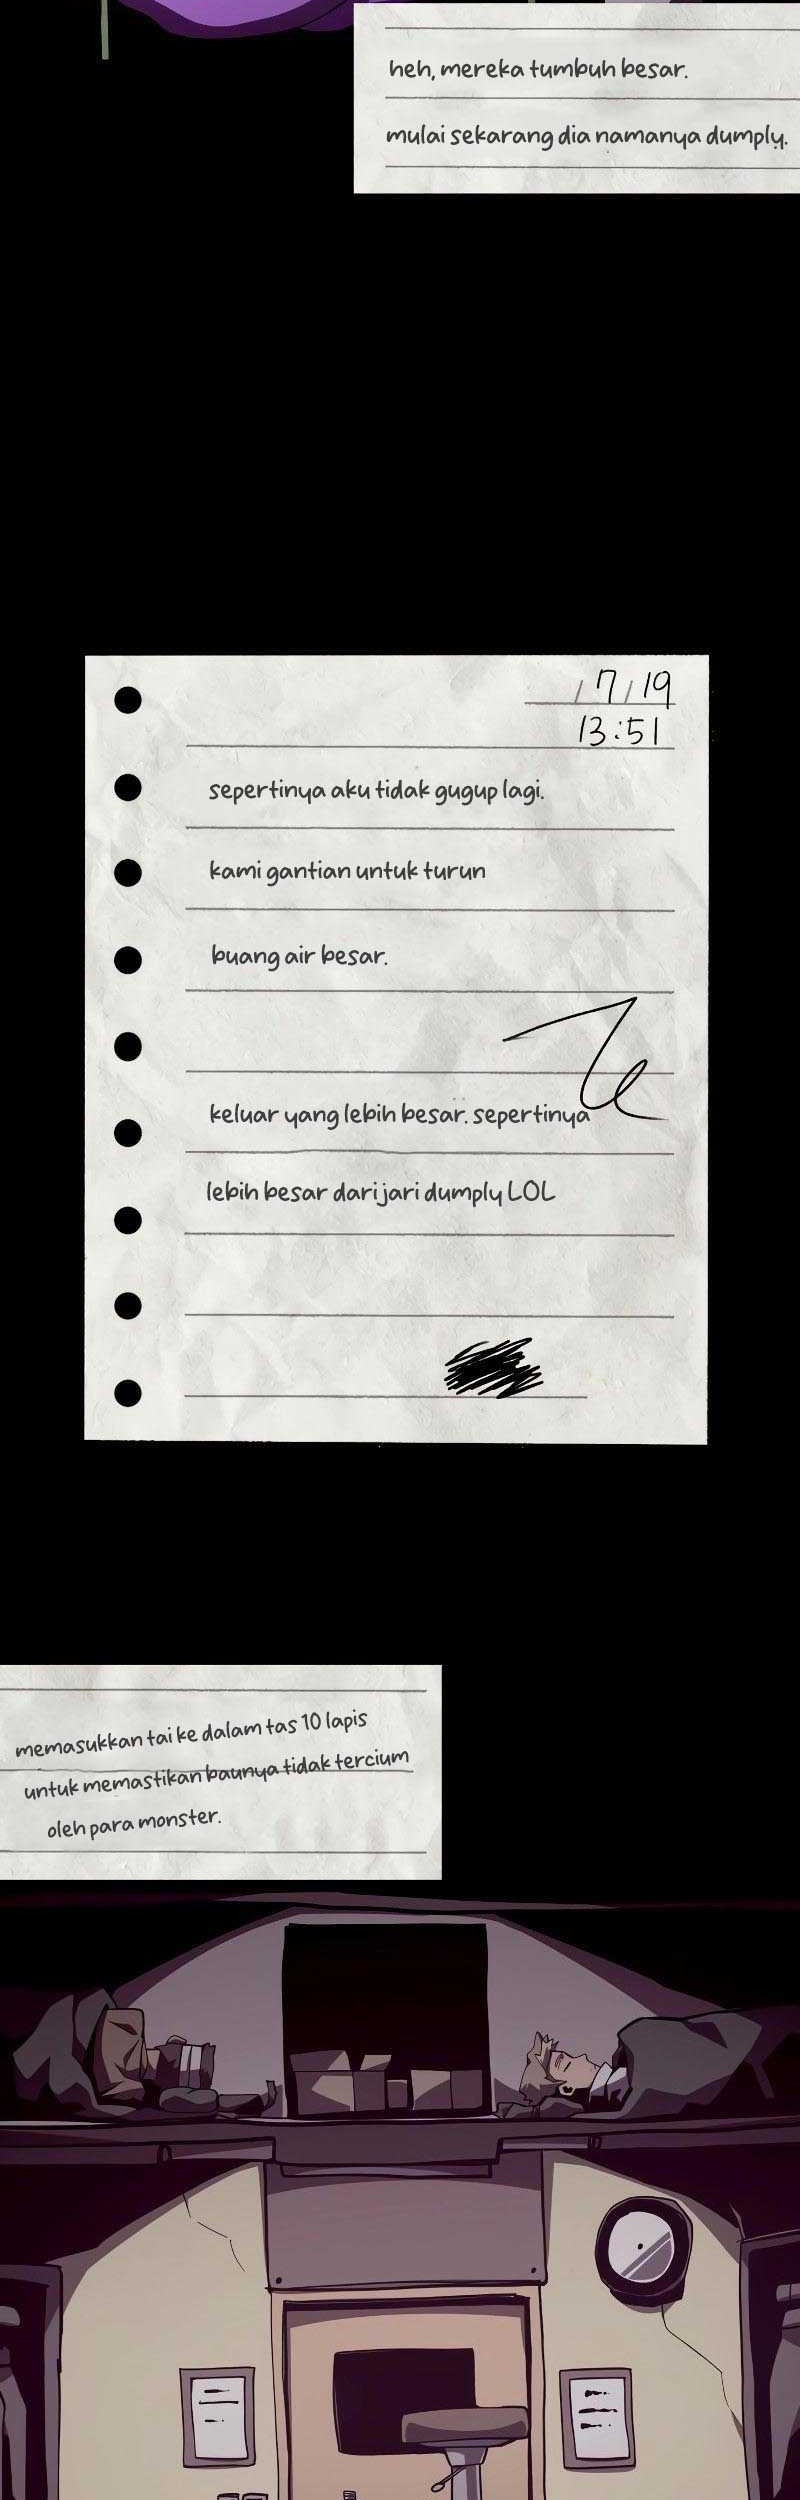 heh, mereka tumbuh besar.
mulai sekarang dia namanya dumply.
/ 7 / 19
13:51
sepertinya aku tidak gugup lagi.
kami gantian untuk turun
buang air besar.
keluar yang lebih besar. sepertinya
lebih besar dari jari dumply LOL
memasukkan tai ke dalam tas 10 lapis
untuk memastikan baunya tidak tercium
oleh para monster.